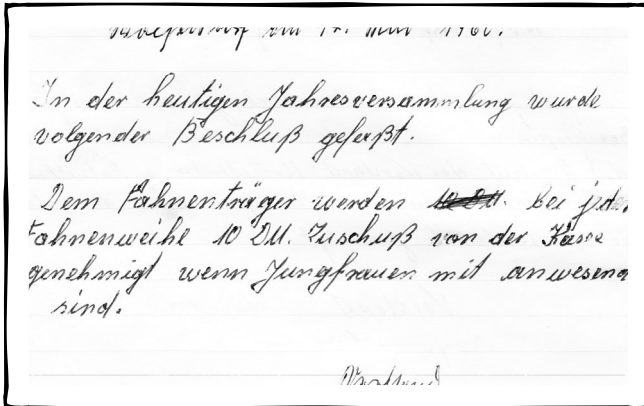 am 17. Mai 1960.
In der heutigen Jahresversammlung wurde
volgender Beschluß gefaßt.
Dem Fahnenträger werden bei jeder
Fahnenweihe 10 DM. Zuschuß von der Kasse
genehmigt wenn Jungfrauen mit anwesend
sind.